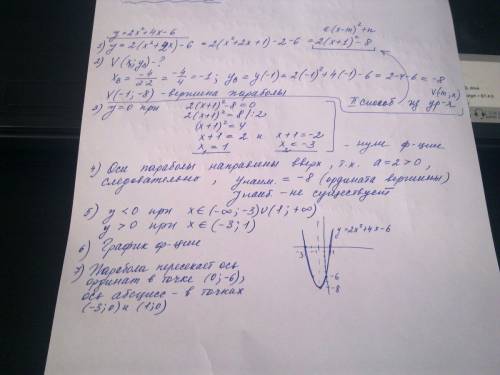 y=2x²+4x-6
a(x-m)²+n
1) y=2(x²+2x)-6=2(x²+2x+1)-2-6=2(x+1)²-8
2) V(x_в; y_в)-?
x_в=-4/2·2=-4/4=-1; y_в=y(-1)=2(-1)²+4(-1)-6=2-4-6=-8
V(m;n)
V(-1;-8) - вершина параболы
II способ из ур-я
3) y=0 при 2(x+1)²-8=0
2(x+1)²=8 |:2
(x+1)²=4
x+1=2 и x+1=-2
x₁=1 x₂=-3 - нули ф-ции
4) Оси параболы направлены вверх, т.к. a=2>0,
следовательно, y наим. = -8 (ордината вершины)
y наиб - не существует
5) y<0 при x∈(-∞;-3)∪(1;+∞)
y>0 при x∈(-3;1)
6) График ф-ции
y=2x²+4x-6
-3
-1
1
-6
-8
7) Парабола пересекает ось
ординат в точке (0;-6),
ось абсцисс - в точках
(-3;0) и (1;0)